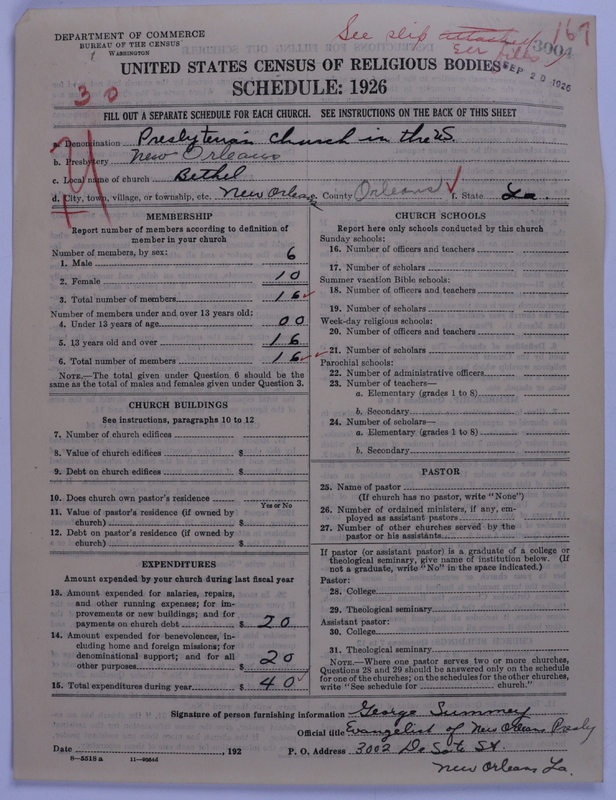 DEPARTMENT OF COMMERCE
BUREAU OF THE CENSUS
WASHINGTON
See slip attached
167
3004
SEP 20 1926
UNITED STATES CENSUS OF RELIGIOUS BODIES
SCHEDULE: 1926
30
FILL OUT A SEPARATE SCHEDULE FOR EACH CHURCH. SEE INSTRUCTIONS ON THE BACK OF THIS SHEET
a. Denomination Presbyterian Church in the U.S.
b. Presbytery New Orleans
c. Local name of church Bethel
d. City, town, village, or township, etc. New Orleans e. County Orleans f. State La.
MEMBERSHIP
Report number of members according to definition of
member in your church
Number of members, by sex:
1. Male 6
2. Female 10
3. Total number of members 16
Number of members under and over 13 years old:
4. Under 13 years of age 00
5. 13 years old and over 16
6. Total number of members 16
NOTE.—The total given under Question 6 should be
same as the total of males and females given under Question 3.
CHURCH BUILDINGS
See instructions, paragraphs 10 to 12
7. Number of church edifices
8. Value of church edifices $
9. Debt on church edifices $
10. Does church own pastor's residence
Yes or No
11. Value of pastor's residence (if owned by
church) $
12. Debt on pastor's residence (if owned by
church) $
EXPENDITURES
Amount expended by your church during last fiscal year
13. Amount expended for salaries, repairs,
and other running expenses; for im-
provements or new buildings; and for
payments on church debt $ 20
14. Amount expended for benevolences, in-
cluding home and foreign missions; for
denominational support; and for all
other purposes $ 20
15. Total expenditures during year $ 40
CHURCH SCHOOLS
Report here only schools conducted by this church
Sunday schools:
16. Number of officers and teachers
17. Number of scholars
Summer vacation Bible schools:
18. Number of officers and teachers
19. Number of scholars
Week-day religious schools:
20. Number of officers and teachers
21. Number of scholars
Parochial schools:
22. Number of administrative officers
23. Number of teachers—
a. Elementary (grades 1 to 8)
b. Secondary
24. Number of scholars—
a. Elementary (grades 1 to 8)
b. Secondary
PASTOR
25. Name of pastor
(If church has no pastor, write "None")
26. Number of ordained ministers, if any, em-
ployed as assistant pastors
27. Number of other churches served by the
pastor or his assistants
If pastor (or assistant pastor) is a graduate of a college or
theological seminary, give name of institution below. (If
not a graduate, write "No" in the space indicated.)
Pastor:
28. College
29. Theological seminary
Assistant pastor:
30. College
31. Theological seminary
NOTE.—Where one pastor serves two or more churches,
Questions 28 and 29 should be answered only on the schedule
for one of the churches; on the schedules for the other churches,
write "See schedule for church."
Signature of person furnishing information George Summey
Official title Evangelist of New Orleans Presby
Date , 192 P. O. Address 3002 De Soto St.
8—5518 a
New Orleans La.